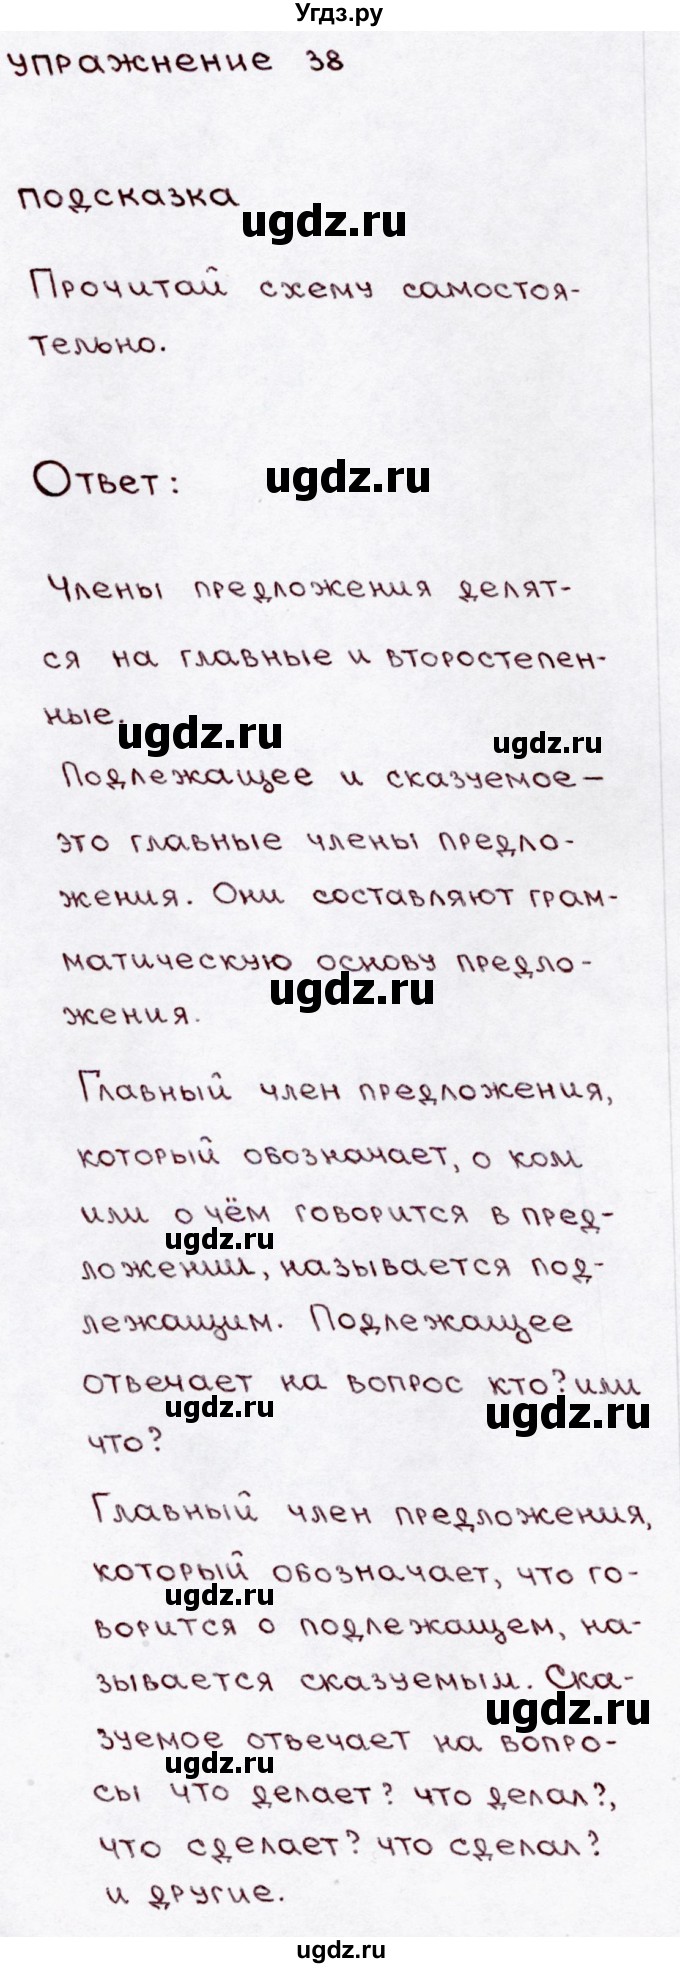 Угдз.ру
упражнение 38
подсказка
ugdz.ru
Прочитай схему самостоя-
тельно.
Ответ:
ugdz.ru
Члены предложения делят-
ся на главные и второстепен-
ные.
ugdz.ru
ugdz.ru
Подлежащее и сказуемое –
это главные члены предло-
жения. Они составляют грам-
матическую основу предло-
ugdz.ru
жения.
Главный член предложения,
который обозначает, о ком
или о чём говорится в пред-
ugdz.ru
ложении, называется под-
лежащим. Подлежащее
отвечает на вопрос кто? или
ugdz.ru
ugdz.ru
что?
Главный член предложения,
который обозначает, что го-
ugdz.ru
ворится о подлежащем, на-
зывается сказуемым. Ска-
ugdz.ru
зуемое отвечает на вопро-
ugdz.ru
сы что делает? что делал?,
что сделает? что сделал?
и другие.
ugdz.ru